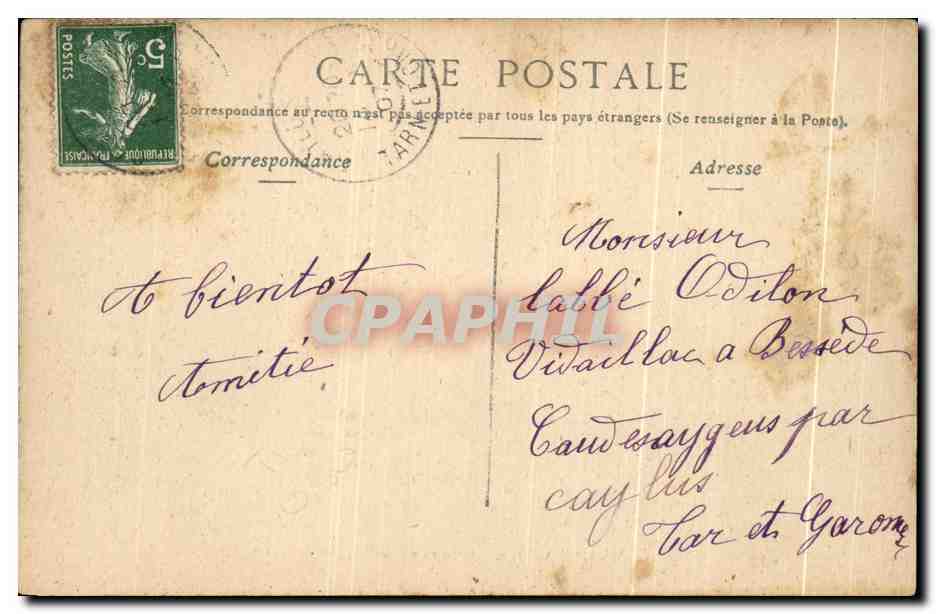 5c
POSTES
REPUBLIQUE FRANÇAISE
TARN-ET-
CARTE POSTALE
Correspondance au recto n'est pas acceptée par tous les pays étrangers (Se renseigner à la Poste).
Correspondance
A bientot
Amitié
Adresse
Monsieur
labbé Odilon
Vidaillac a Bessède
Caudesaygues par
caylus
Tar et Garonne
CPAPHIL